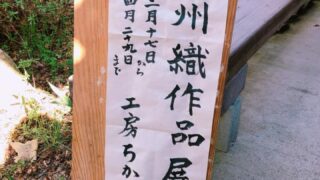 州織作品展
三月十七日から
四月二十九日まで
工房ちか